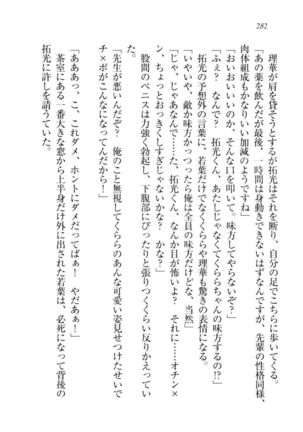 282
理華が肩を貸そうとするが拓光はそれを断り、自分の足でこちらに歩いてくる。
「あの薬を飲んだが最後、一時間は身動きできないはずなんですが、先輩の性格同様、
肉体組成もかなりいい加減のようですね」
「おいおいいいのか、そんな口を叩いて。味方してやらないぞ?」
「ふぇ? なんで? 拓光くん、あたしじゃなくてくららちゃんの味方するの!?」
拓光の予想外の言葉に、若葉だけでなくくららや理華も驚きの表情になる。
「いやいや、敵か味方かっつったら俺は全員の味方だけどな、当然」
「じゃ、じゃあなんで……た、拓光くん、なんか目が怖いよ? それに……オチン×
ン、ちょっとおっきくしすぎじゃないかな? かな?」
股間のペニスは力強く勃起し、下腹部にぴったりと張りつくくらい反りかえってい
た。
「先生が悪いんだぞ? 俺のこと無視してくららのあんな可愛い姿見せつけたせいで
チ×ポがこんなになってんだから!」
「あああっ、こ、これダメ、ホントにダメだってばぁ! やだあぁ!」
茶室にある一番大きな窓から上半身だけ外に出された若葉は、必死になって背後の
拓光に許しを請うていた。